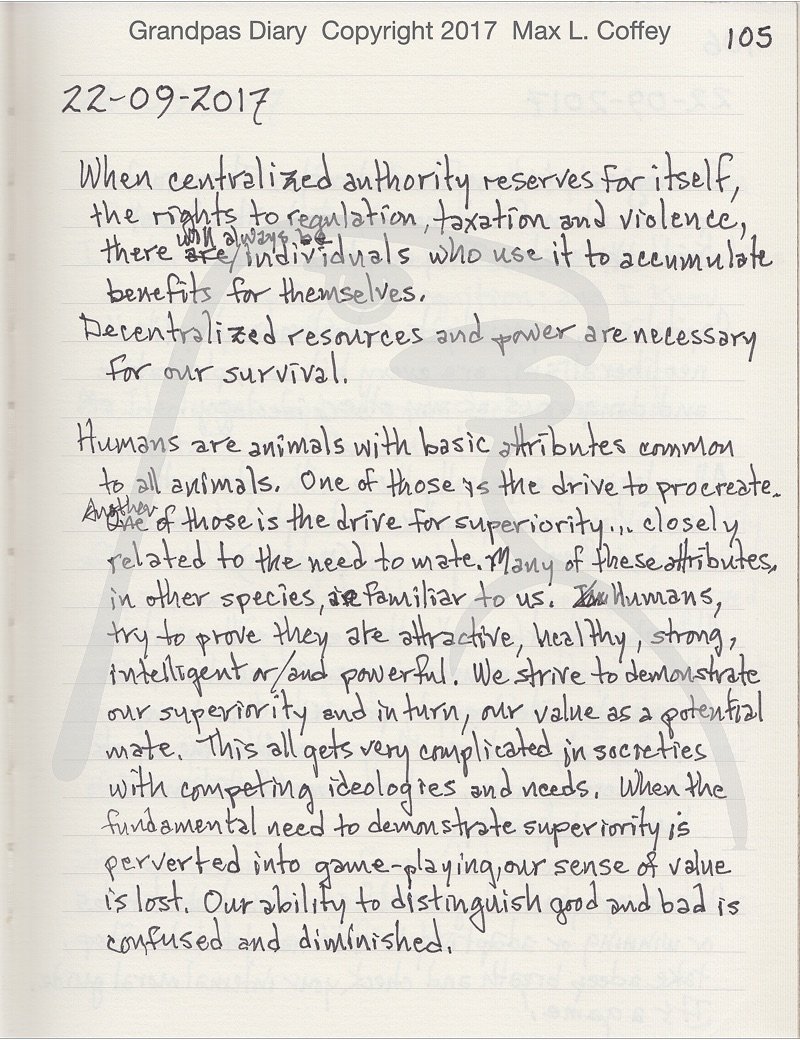 Grandpas Diary Copyright 2017 Max L. Coffey
105
22-09-2017
When centralized authority reserves for itself,
the rights to regulation, taxation and violence,
will always be
there are/individuals who use it to accumulate
benefits for themselves.
Decentralized resources and power are necessary
for our survival.
Humans are animals with basic attributes common
to all animals. One of those is the drive to procreate.
Another
One of those is the drive for superiority... closely
related to the need to mate. Many of these attributes,
in other species, are familiar to us. Humans,
try to prove they are attractive, healthy, strong,
intelligent or/and powerful. We strive to demonstrate
our superiority and in turn, our value as a potential
mate. This all gets very complicated in societies
with competing ideologies and needs. When the
fundamental need to demonstrate superiority is
perverted into game-playing, our sense of value
is lost. Our ability to distinguish good and bad is
confused and diminished.